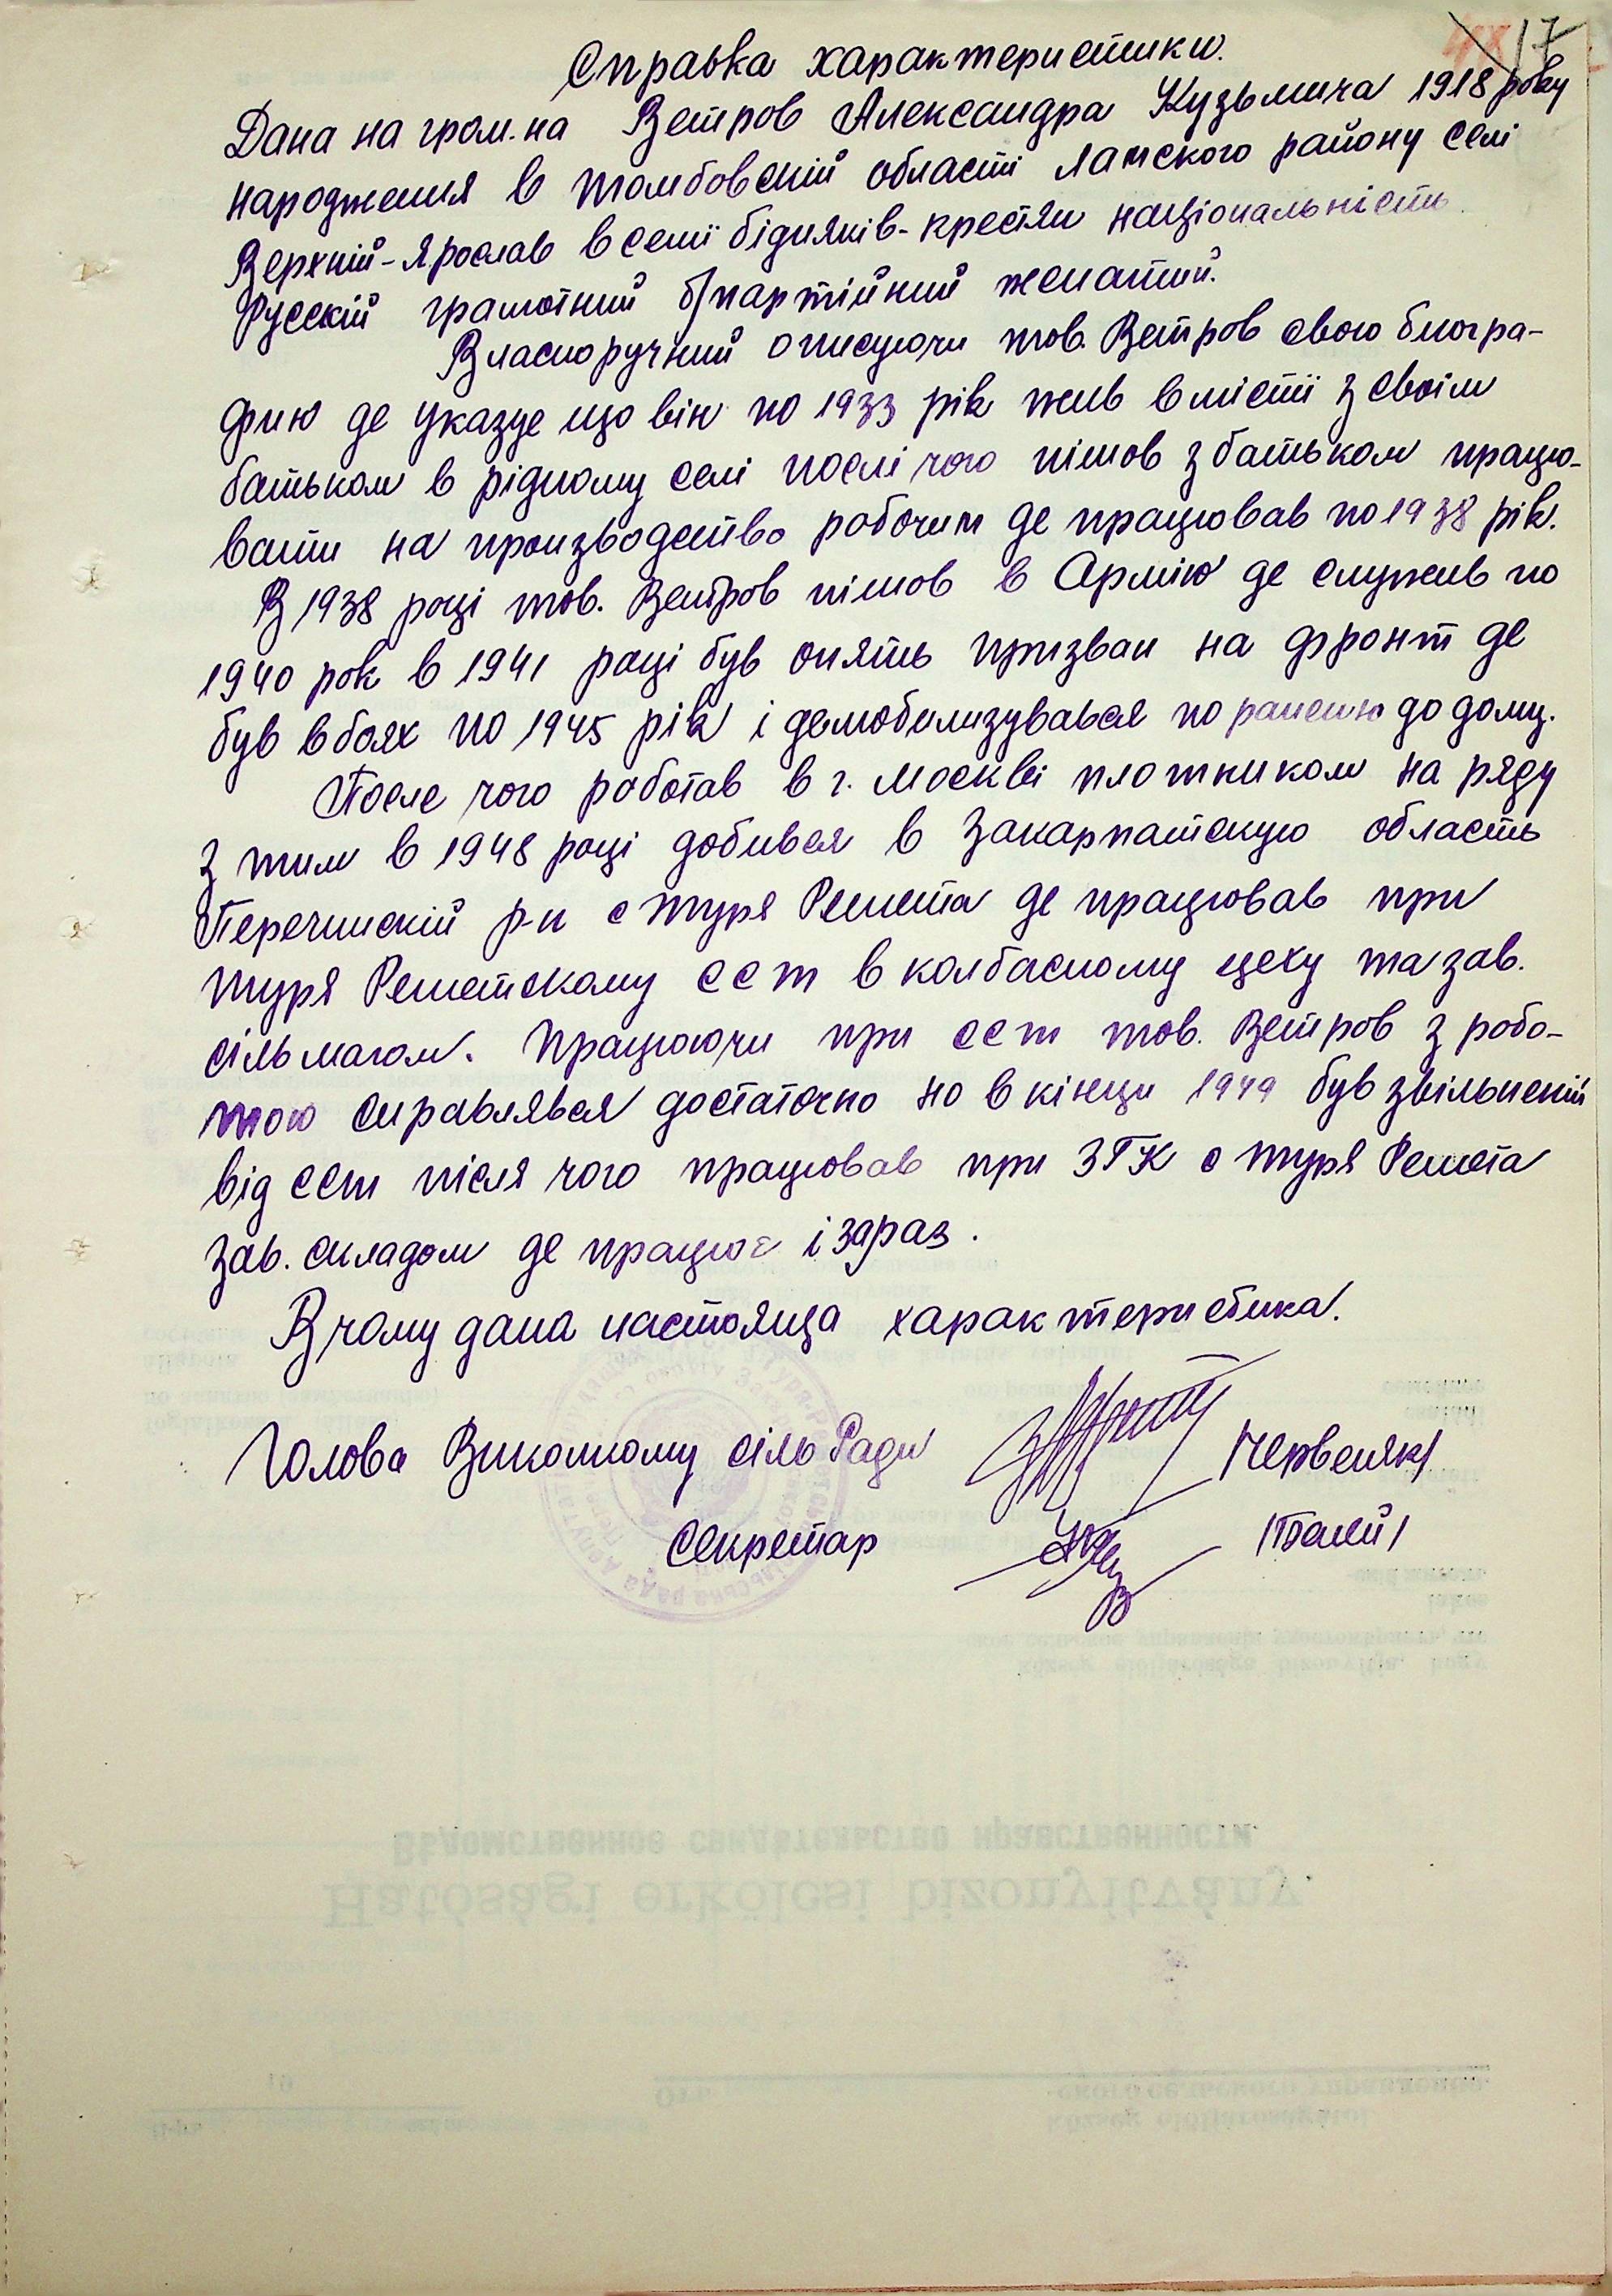 17
Справка характеристики.
Дана на гром.на Ветров Александра Кузьмича 1918 року
народження в томбовскій області Ламского району селі
Верхній-Ярослав в семї бідняків-крестян національність
Русскій грамотний б/партійний женатий.
Власноручний описуючи тов. Ветров свою биогра-
фию де указуе що він по 1933 рік жив вмісті з своїм
батьком в рідному селі послі чого пішов з батьком працю-
вати на производство рабочим де працював по 1938 рік.
В 1938 році тов. Ветров пішов в Армію де служив по
1940 рок в 1941 році був опять призван на фронт де
був в боях по 1945 рік і демобилизувався по раненю до дому.
После чого работав в г. Москві плотником на ряду
з тим в 1948 році добився в Закарпатскую область
Перечинскій р-н с Туря Ремета де працював при
Туря Реметскому ССТ в колбасному цеху та зав.
сільмагом. Працюючи при ССТ тов. Ветров з робо-
тою справлявся достаточно но в кінци 1949 був звільнений
від ССТ після чого працював при ЗГК с Туря Ремета
зав. складом де працює і зараз.
В чому дана настояща характеристика.
Голова Виконкому сіль Ради /Червеняк/
Секретар
Ведомственное свидетельство нравственности
Hatósági erkölcsi bizonyítvány.